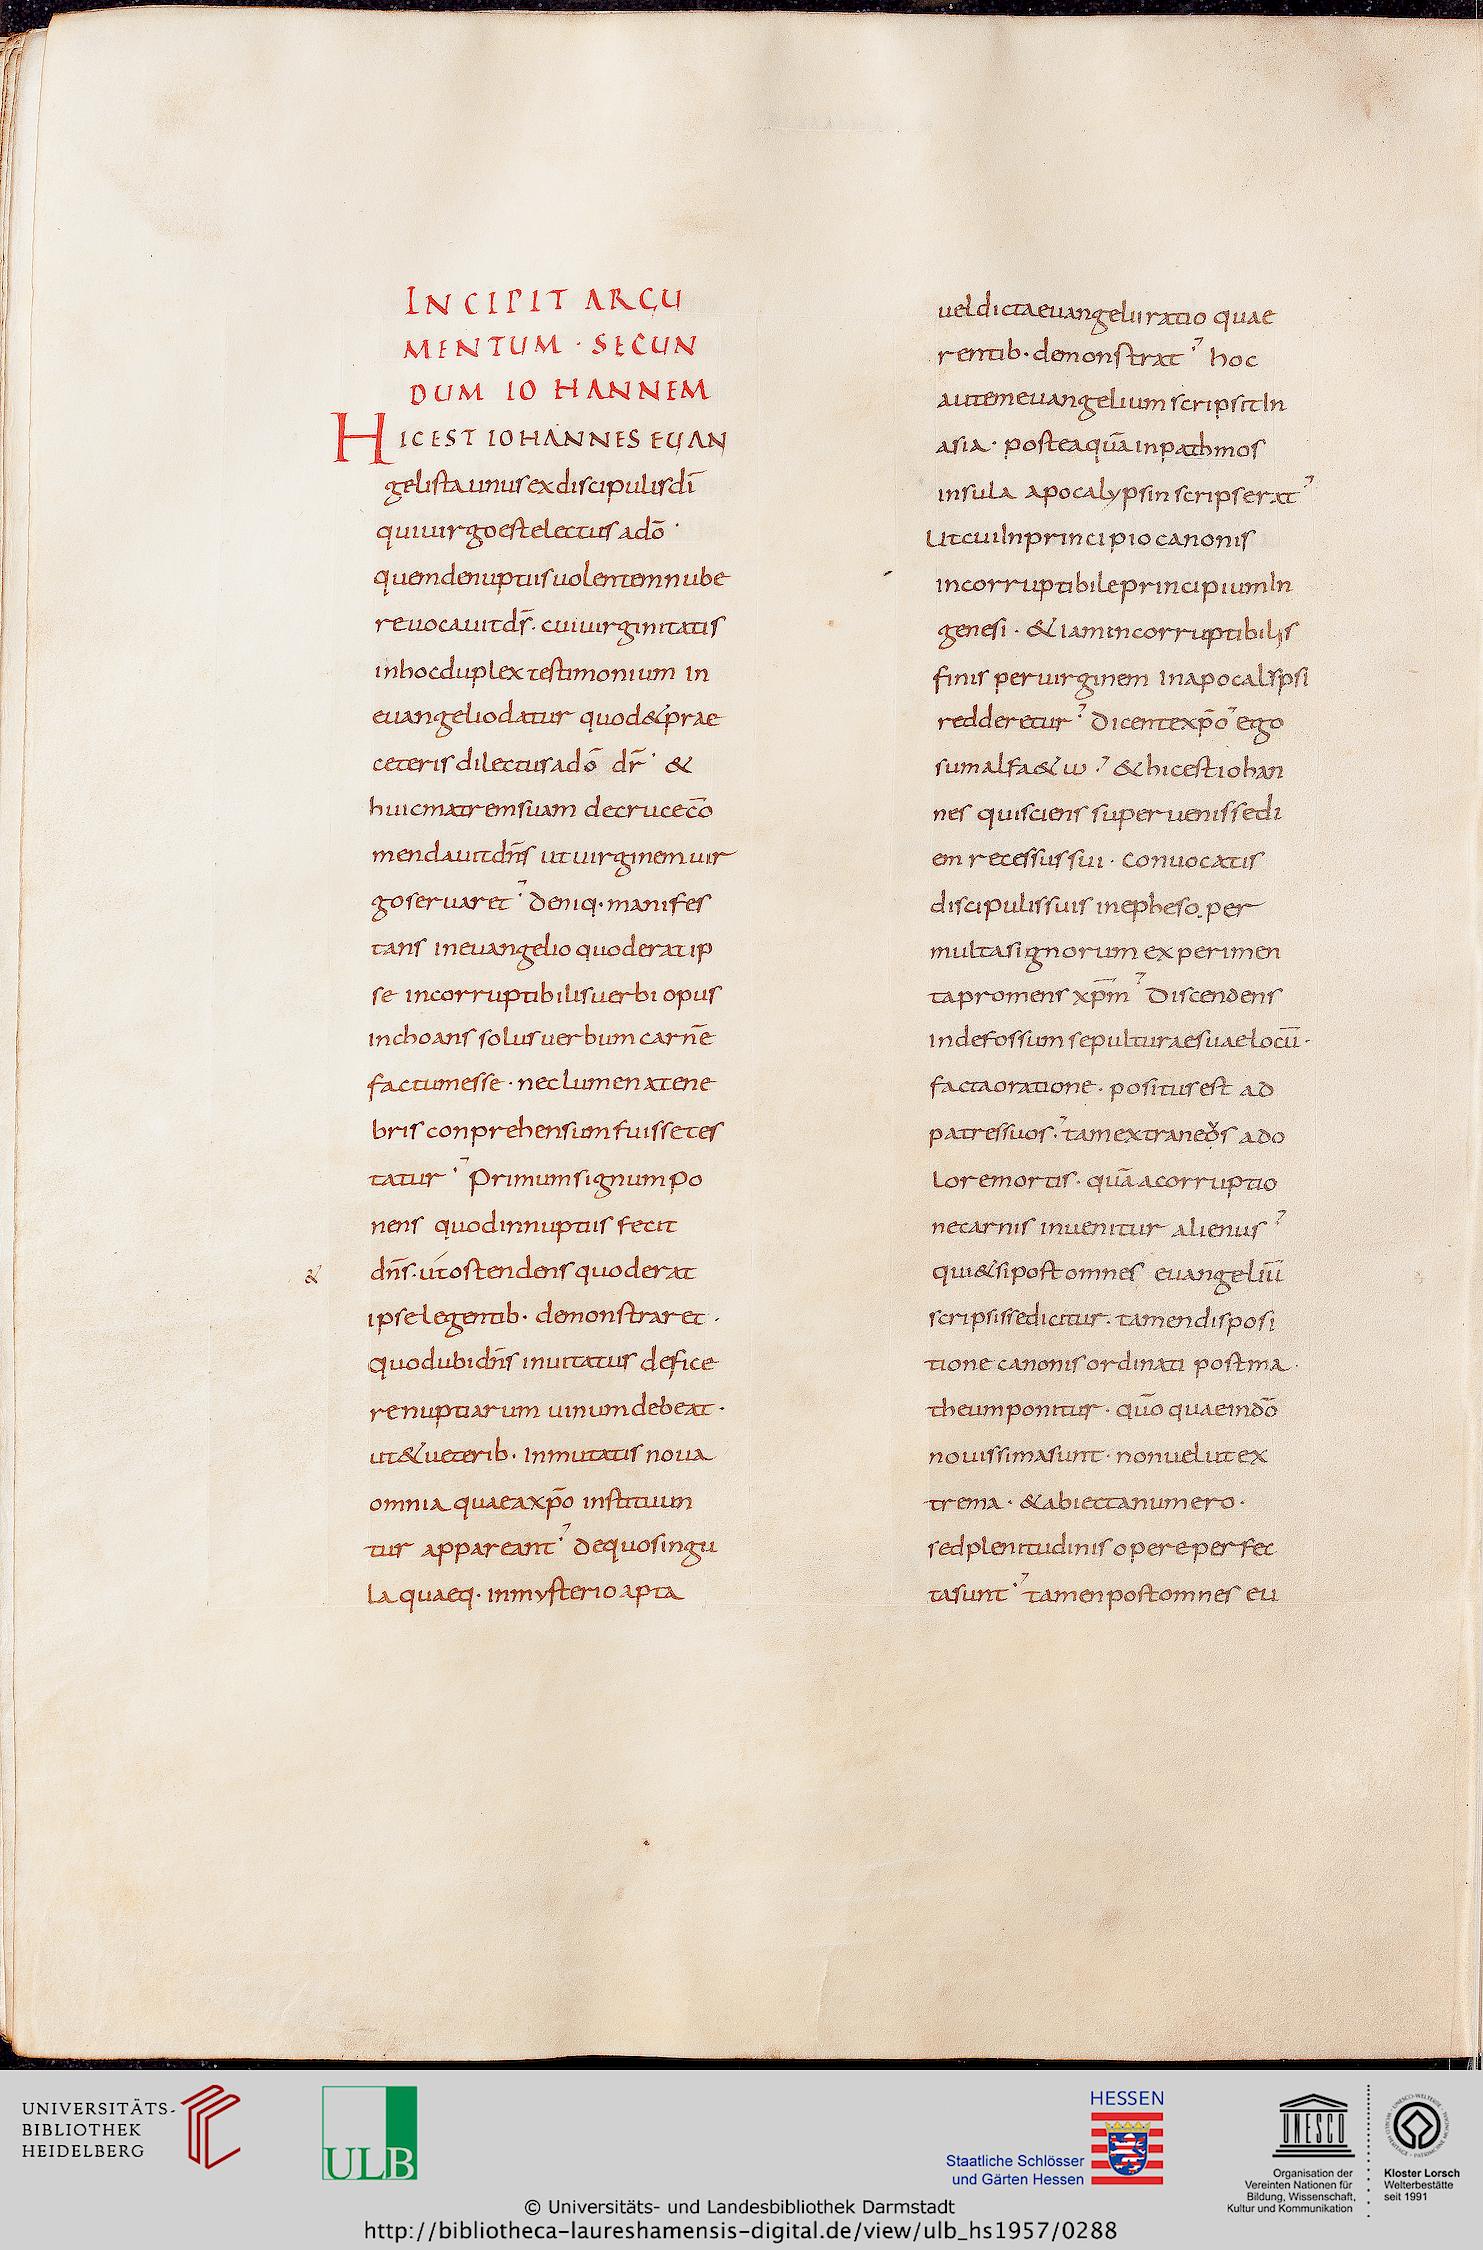 INCIPIT ARGU
MENTUM · SECUN
DUM IOHANNEM
HIC EST IOHANNES EUAN
gelista unus ex discipulis dī
qui uirgo est electus a dō ·
quem de nuptiis uolentem nube
re uocauit dſ̄. cui uirginitatis
in hoc duplex testimonium in
euangelio datur quod & prae
ceteris dilectus a dō dr̄ · &
huic matrem suam de cruce cō
mendauit dn̄s ut uirginem uir
go seruaret · deniq· manifes
tans in euangelio quod erat ip
se incorruptibilis uerbi opus
inchoans solus uerbum carnē
factum esse · nec lumen a tene
bris conprehensum fuisse tes
tatur · Primum signum po
nens quod in nuptiis fecit
dn̄s · ut ostendens quod erat
&
ipse legentib· demonstraret ·
quod ubi dn̄s inuitatus defice
re nuptiarum uinum debeat ·
ut & ueterib· inmutatis noua
omnia quae a xp̄o instituun
tur appareant · de quo singu
la quaeq· in mysterio apta
uel dicta euangelii ratio quae
rentib· demonstrat · hoc
autem euangelium scripsit In
asia · postea quā in pathmos
insula apocalypsin scripserat
Ut cui In principio canonis
incorruptibile principium In
genesi · & iam incorruptibilis
finis per uirginem In apocalypsi
redderetur · dicente xp̄o ego
sum alfa & ω · & hic est iohan
nes qui sciens superuenisse di
em recessus sui · conuocatis
discipulis suis in epheso per
multa signorum experimen
ta promens xp̄m · discendens
in defossum sepulturae suae locū ·
facta oratione · positus est ad
patres suos · tam extraneos a do
lore mortis · quā a corruptio
ne carnis inuenitur alienus
qui & si post omnes euangeliū
scripsisse dicitur · tamen disposi
tione canonis ordinati post ma
theum ponitur · quō quae in dō
nouissima sunt · non uelut ex
trema · & abiecta numero ·
sed plenitudinis opere perfec
ta sunt · tamen post omnes eu
UNIVERSITÄTS-
BIBLIOTHEK
HEIDELBERG
ULB
HESSEN
Staatliche Schlösser
und Gärten Hessen
UNESCO
Organisation der
Vereinten Nationen für
Bildung, Wissenschaft,
Kultur und Kommunikation
Kloster Lorsch
Welterbestätte
seit 1991
© Universitäts- und Landesbibliothek Darmstadt
http://bibliotheca-laureshamensis-digital.de/view/ulb_hs1957/0288